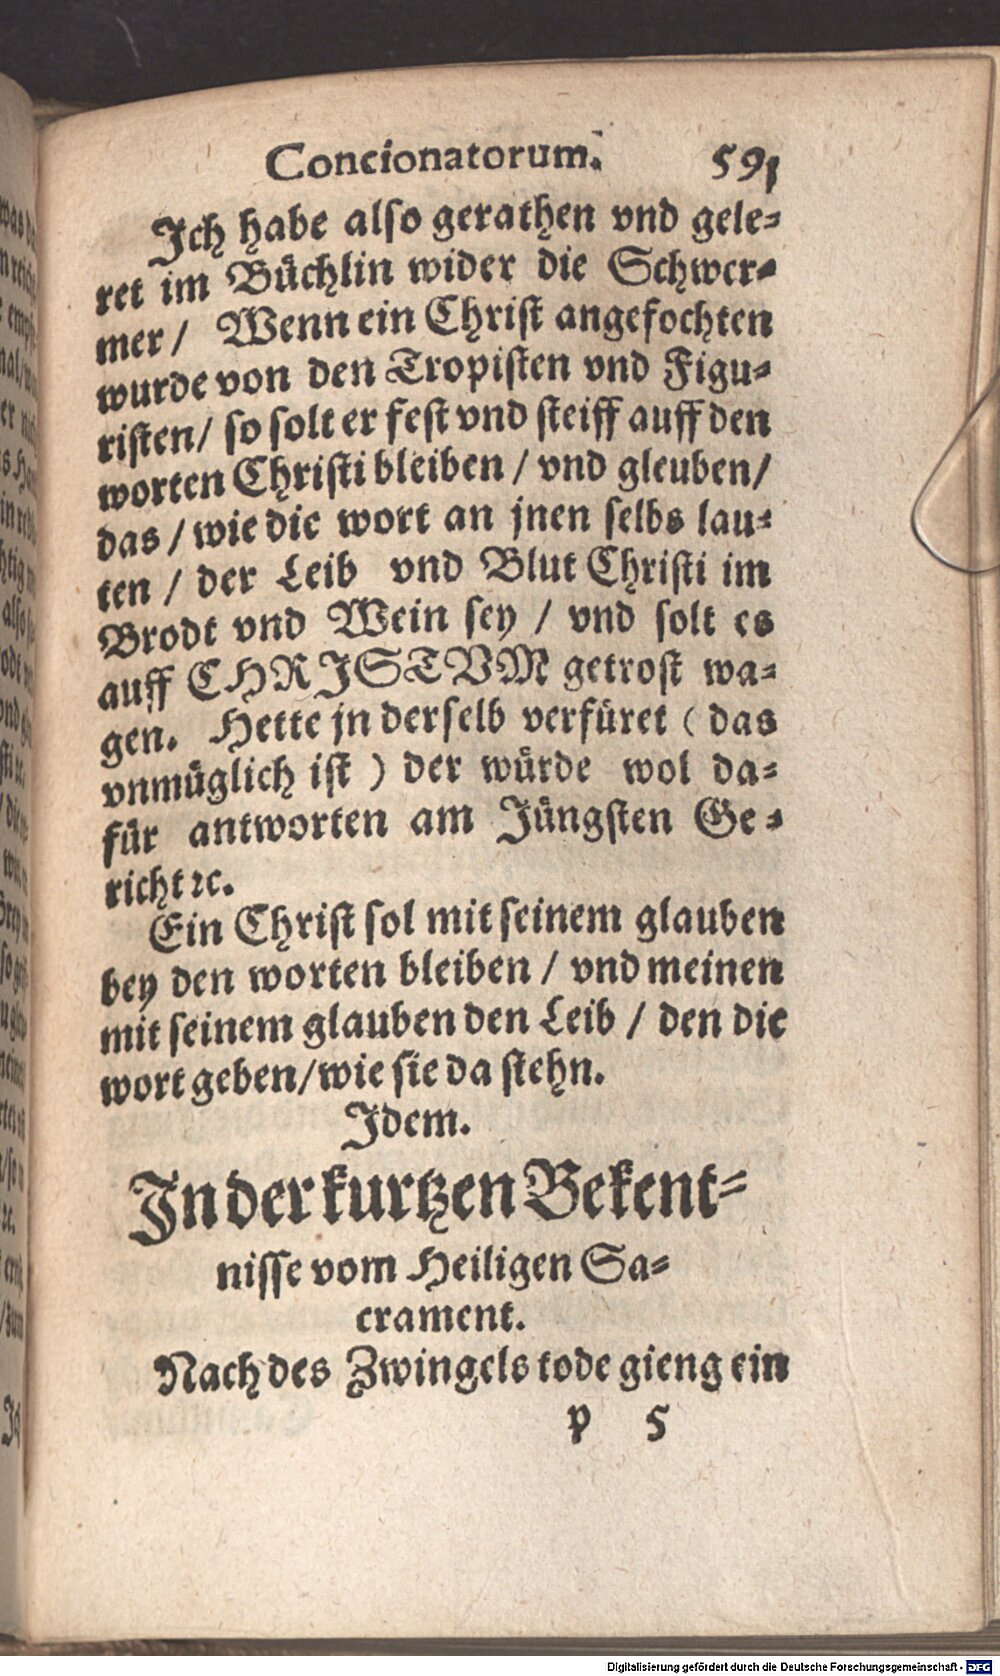 Concionatorum. 591
Ich habe also gerathen vnd gele-
ret im Büchlin wider die Schwer-
mer / Wenn ein Christ angefochten
wurde von den Tropisten vnd Figu-
risten / so solt er fest vnd steiff auff den
worten Christi bleiben / vnd gleuben /
das / wie die wort an jnen selbs lau-
ten / der Leib vnd Blut Christi im
Brodt vnd Wein sey / vnd solt es
auff CHRISTVM getrost wa-
gen. Hette jn derselb verfüret ( das
vnmüglich ist ) der würde wol da-
für antworten am Jüngsten Ge-
richt ꝛc.
Ein Christ sol mit seinem glauben
bey den worten bleiben / vnd meinen
mit seinem glauben den Leib / den die
wort geben / wie sie da stehn.
Idem.
In der kurtzen Bekent-
nisse vom Heiligen Sa-
crament.
Nach des Zwingels tode gieng ein
p 5
Digitalisierung gefördert durch die Deutsche Forschungsgemeinschaft - DFG